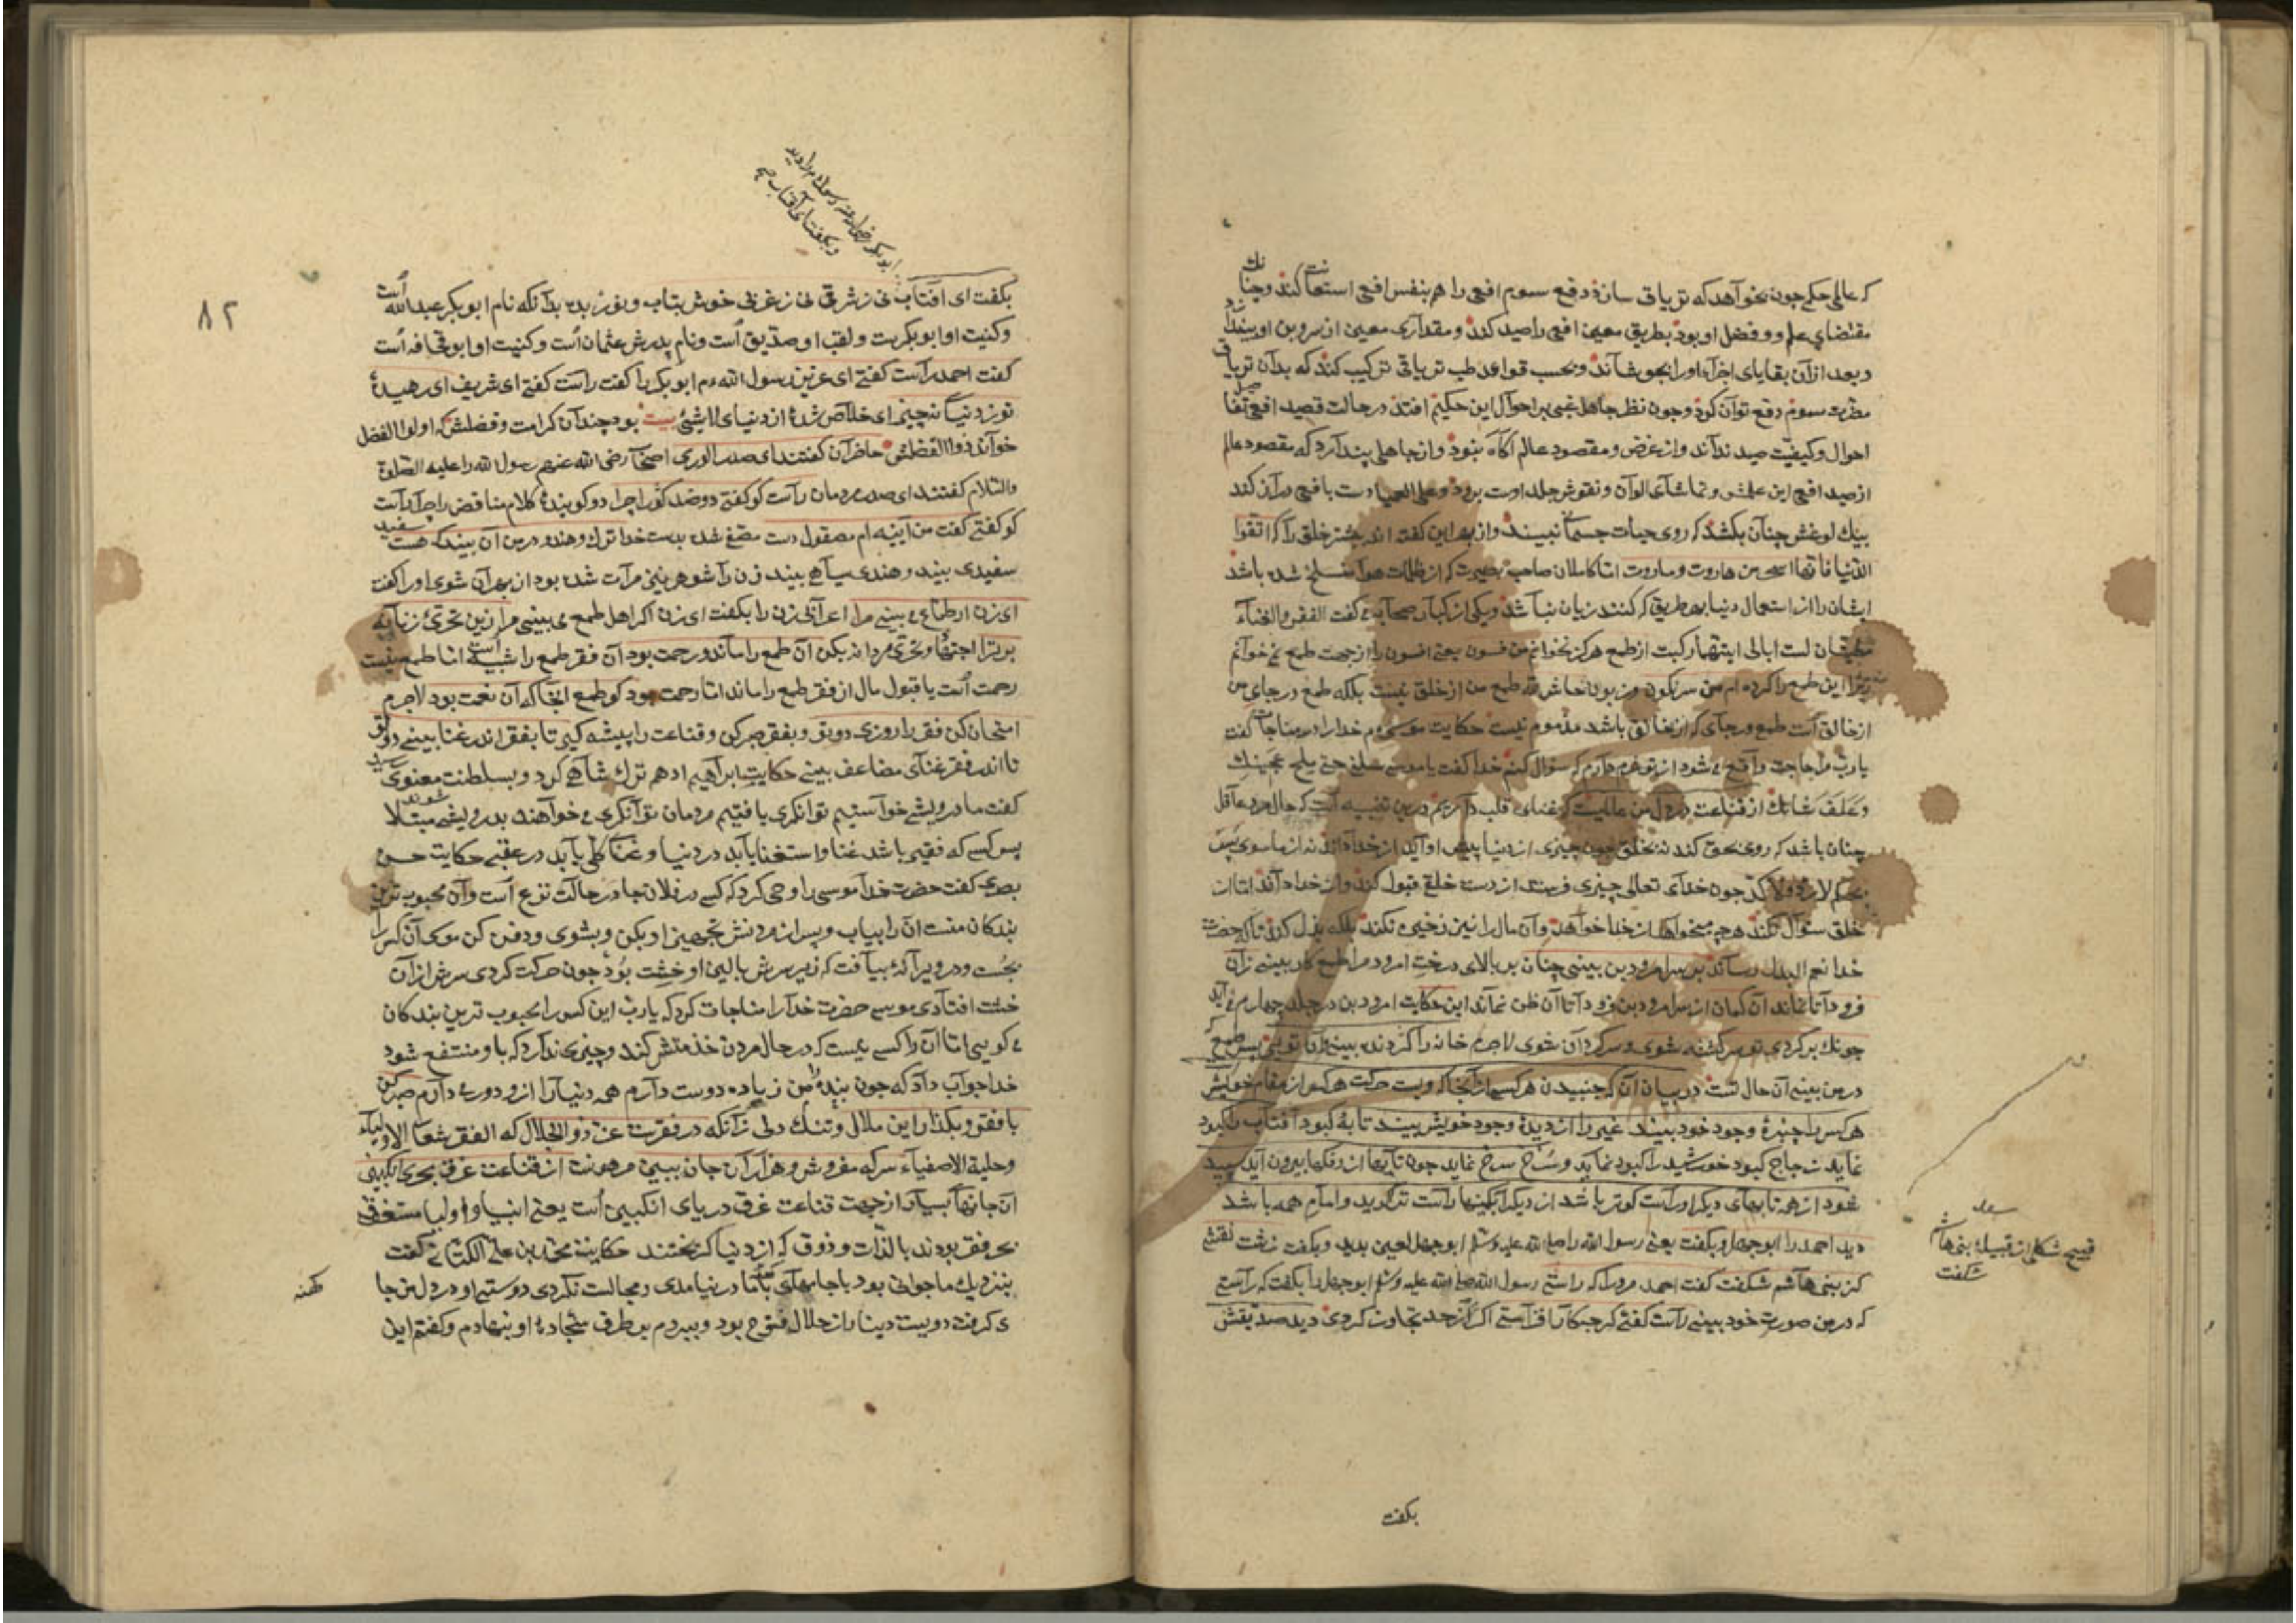 که عالم حکیم چون بخواهد که تریاق سازد و دفع سموم افعی را هم بنفس افعی استعانت کند و چنانک
مقتضای علم و فضل او بود بطریق معین افعی را صید کند و مقداری معین از سر و بن او بیندازد
و بعد از آن بقایای اجزاء او را بجوشاند و بحسب قواعد طب تریاق ترکیب کند که بدان تریاق
مضرت سموم دفع توان کرد و چون نظر جاهل غبی بر احوال این حکیم افتد در حالت قصید افعی
احوال و کیفیت صید نداند و از غرض و مقصود عالم آگاه نبود و از جاهلی پندارد که مقصود عالم
از صید افعی این و تماشای الوان و نقوش جلد اوست
چنان بکشد که روی حیات جسمانی نبیند و از بهر این گفته اند خلق را که اتقوا
الدنیا فانها اسحر من هاروت و ماروت اما کاملان صاحب بصیرت که از ظلمات هوا منسلخ شده باشد
ایشان را از استعمال دنیا بهر طریق که کنند زیان نباشد و یکی از کبار صحابه گفت الفقر والغناء
مطیتان لست ابالی ایتهما رکبت از طمع هرگز نخوانم من فسون یعنی افسون را از جهت طمع نمی خوانم
زیرا این طمع را کرده ام من سرنگون حاش لله طمع من از خلق نیست بلکه طمع در جای من
از خالق است طمع در جای که از خالق باشد مذموم نیست حکایت موسی م خدا را در مناجات گفت
یا رب مرا حاجت واقع می شود از تو شرم دارم که سؤال کنم خدا گفت یا موسی سلنی حتی ملح عجینک
و علف شاتک از قناعت در دل من عالمیست غنای قلب دارم درین که حال مرد عاقل
چنان باشد که روی بحق کند نه بخلق چون چیزی از دنیا پیش او آید از خدا داند نه از ما سوی پس
چون خدای تعالی چیزی فرستد از دست خلق قبول کند و از خدا داند اما از
خلق سؤال نکند هر چه میخواهد از خدا خواهد و آن مال را نیز ذخیره نکند بلکه بذل کند تا که حضرت
خدا نعم البدل رساند بر سر امرودبن بینی چنان بر بالای درخت امرود مرا طمع کار بینی زان
فرود آ تا نماند آن گمان از سر امرودبن فرود آ تا آن ظن نماند این حکایت امرودبن در جلد چهارم می آید
چونک برگردی تو سرگشته شوی و سرگردان شوی لاجرم خانه را گردنده بینی و آن تویی پس طمع که
در من بینی آن حال تست در بیان آن که جنبیدن هر کسی از آنجا که ویست حرکت هر کس از مقام خویش
هر کس را چنبره وجود خود بیند غیر را از دیده وجود خویش بیند تابه کبود آفتاب را کبود
نماید زجاج کبود خورشید را کبود نماید و سرخ سرخ نماید چون تابها از رنگها بیرون آید سپید
شود از همه تابهای دیگر او راست گوتر باشد از دیگر آبگینها راست تر گوید و امام همه باشد
دید احمد را ابوجهل و بگفت یعنی رسول الله را صلی الله علیه وسلم ابوجهل لعین بدید و بگفت زشت نقشی
کز بنی هاشم شکفت گفت احمد مر ورا که راستی رسول الله صلی الله علیه وسلم ابوجهل را بگفت که راستی
که در من صورت خود بینی راست گفتی گر چه کار افزاستی اگر از حد تجاوز کردی دید صدیقش
قبیح شکلی از قبیله بنی هاشم
شکفت
بگفت
ابوبکر رضی الله عنه رسول م را دید
و بگفت ای آفتاب
۸۲
بگفت ای آفتاب نی ز شرقی نی ز غربی خوش بتاب و نور بده بدانکه نام ابوبکر عبدالله است
و کنیت او ابوبکرست و لقب او صدیق است و نام پدرش عثمان است و کنیت او ابو قحافه است
گفت احمد راست گفتی ای عزیز رسول الله م ابوبکر را گفت راست گفتی ای شریف ای رهیده
تو ز دنیا نه چیز ای خلاص شده از دنیای لا شیئ بیت بود چندان کرامت و فضلش که اولوا الفضل
خواند ذوالفضلش حاضران گفتند ای صدر الوری اصحاب رضی الله عنهم رسول الله را علیه الصلوة
والسلام گفتند ای صدر مردمان راست گو گفتی دو ضد گو را چرا دو گوینده کلام مناقض را چرا راست
گو گفتی گفت من آینه ام مصقول دست مصفی شده بدست خدا ترک و هندو در من آن بیند که هست سفید
سفیدی بیند و هندی سیاهی بیند زن را شوهر بنی مرآت شده بود از بهر آن شوی او را گفت
ای زن ار طماع می بینی مرا اعرابی زن را بگفت ای زن اگر اهل طمع می بینی مرا زین تحری زنانه
برتر آ اجتهاد و تحری مردانه بکن آن طمع را ماند و رحمت بود آن فقر طمع را شبیه است اما طمع نیست
رحمت است یا قبول مال از فقر طمع را ماند اما رحمت بود کو طمع آنجا که آن نعمت بود لاجرم
امتحان کن فقر را روزی دو تو و بفقر صبر کن و قناعت را پیشه گیر تا بفقر اندر غنا بینی دو تو
تا اندر فقر غنای مضاعف بینی حکایت ابراهیم ادهم ترک شاهی کرد و بسلطنت معنوی رسید
گفت ما درویشی خواستیم توانگری یافتیم مردمان توانگری می خواهند بدرویشی مبتلا شوند
پس کسی که فقیر باشد غنا و استغنا یابد در دنیا و غنا کلی یابد در عقبی حکایت حسن
بصری گفت حضرت خدا موسی را وحی کرد که کسی در فلان جا در حالت نزع است و آن محبوب ترین
بندگان منست آن را بیاب و پس از مردنش تجهیز او بکن و بشوی و دفن کن موسی آن کس را
بجست و در ویرانه بیافت که زیر سرش بالین او خشت بود چون حرکت کردی سرش از آن
خشت افتادی موسی حضرت خدا را مناجات کرد که یا رب این کس را محبوب ترین بندگان
می گویی اما آن را کسی نیست که در حال مردن خدمتش کند و چیزی ندارد که باو منتفع شود
خدا جواب داد که چون بنده من زیاده دوست دارم همه دنیا را از و دور می دارم صبر کن
با فقر و بگذار این ملال و تنک دلی زآنکه در فقرست عز ذو الجلال که الفقر شعار الاولیاء
و حلیة الاصفیاء سرکه مفروش و هزاران جان ببین مر هونت از قناعت غرق بحر انگبین
آن جانها بسیار از جهت قناعت غرق دریای انگبین است یعنی انبیا و اولیا مستغرق
بحر فقر بودند با لذات و ذوق که از دنیا گریختند حکایت محمد بن علی الکتانی گفت
بنزدیک ما جوانی بود با جامهای کهنه اما در نیامدی و مجالست نکردی دوستی او در دل من جا
می گرفت دویست دینار از حلال فتوح بود و ببردم بر طرف سجاده او بنهادم و گفتم این
کهنه